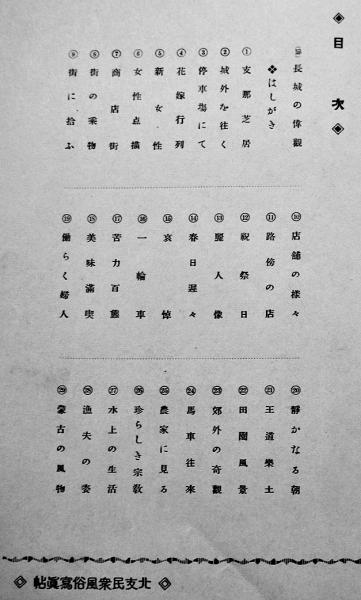 ◈目次◈
(表) 長城の偉觀
❖はしがき
① 支那芝居
② 城外を往く
③ 停車場にて
④ 花嫁行列
⑤ 新女性
⑥ 女性点描
⑦ 商店街
⑧ 街の乘物
⑨ 街に拾ふ
⑩ 店舗の樣々
⑪ 路傍の店
⑫ 祝祭日
⑬ 麗人像
⑭ 春日遲々
⑮ 哀悼
⑯ 一輪車
⑰ 苦力百態
⑱ 美味滿喫
⑲ 働らく婦人
⑳ 靜かなる朝
㉑ 王道樂土
㉒ 田園風景
㉓ 郊外の奇觀
㉔ 馬車往來
㉕ 農家に見る
㉖ 珍らしき宗敎
㉗ 水上の生活
㉘ 漁夫の姿
㉙ 蒙古の風物
◈帖眞寫俗風衆民支北◈